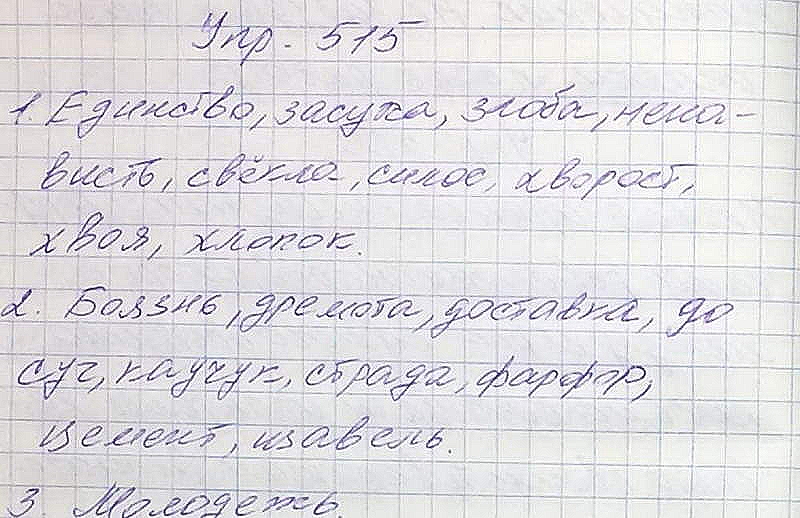 Упр. 515
1. Единство, засуха, злоба, нена-
висть, свёкла, силос, хворост,
хвоя, хлопок.
2. Боязнь, дремота, доставка, до
суг, каучук, страда, фарфор,
цемент, щавель.
3 Молодежь.